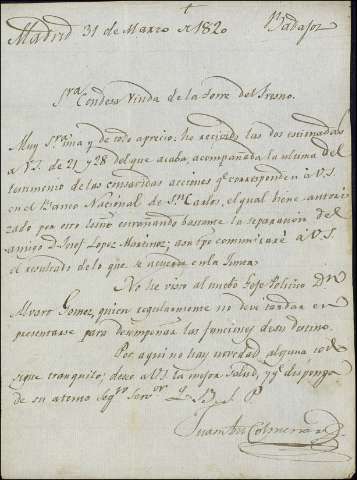 Madrid 31 de Marzo de 1820 Badajoz
Sra Condesa Viuda de la Torre del Fresno.
Muy Sra mia y de todo aprecio: he recivido las dos estimadas
de V.S. de 21 y 28 del que acaba, acompañaba la ultima del
testimonio de las consavidas acciones qe corresponden à V.S.
en el Banco Nacional de Sn Carlos, el qual biene autori-
zado por otro Esno estrañando bastante la separacion del
amigo Dn Josef Lopez Martinez; con tpo comunicaré à V.S.
el resultado de lo que se acuerde en la Junta.
No he visto al nuebo Jefe Politico Dn
Alvaro Gomez, quien regularmente no debe tardar en
presentarse para desempeñar las funciones de su destino.
Por aqui no hay novedad alguna todo
sigue tranquilo; deseo à V.S. la mejor salud, y qe disponga
de su atento Segro Servor Q. S. P. B.
Juan Anto Colmenares